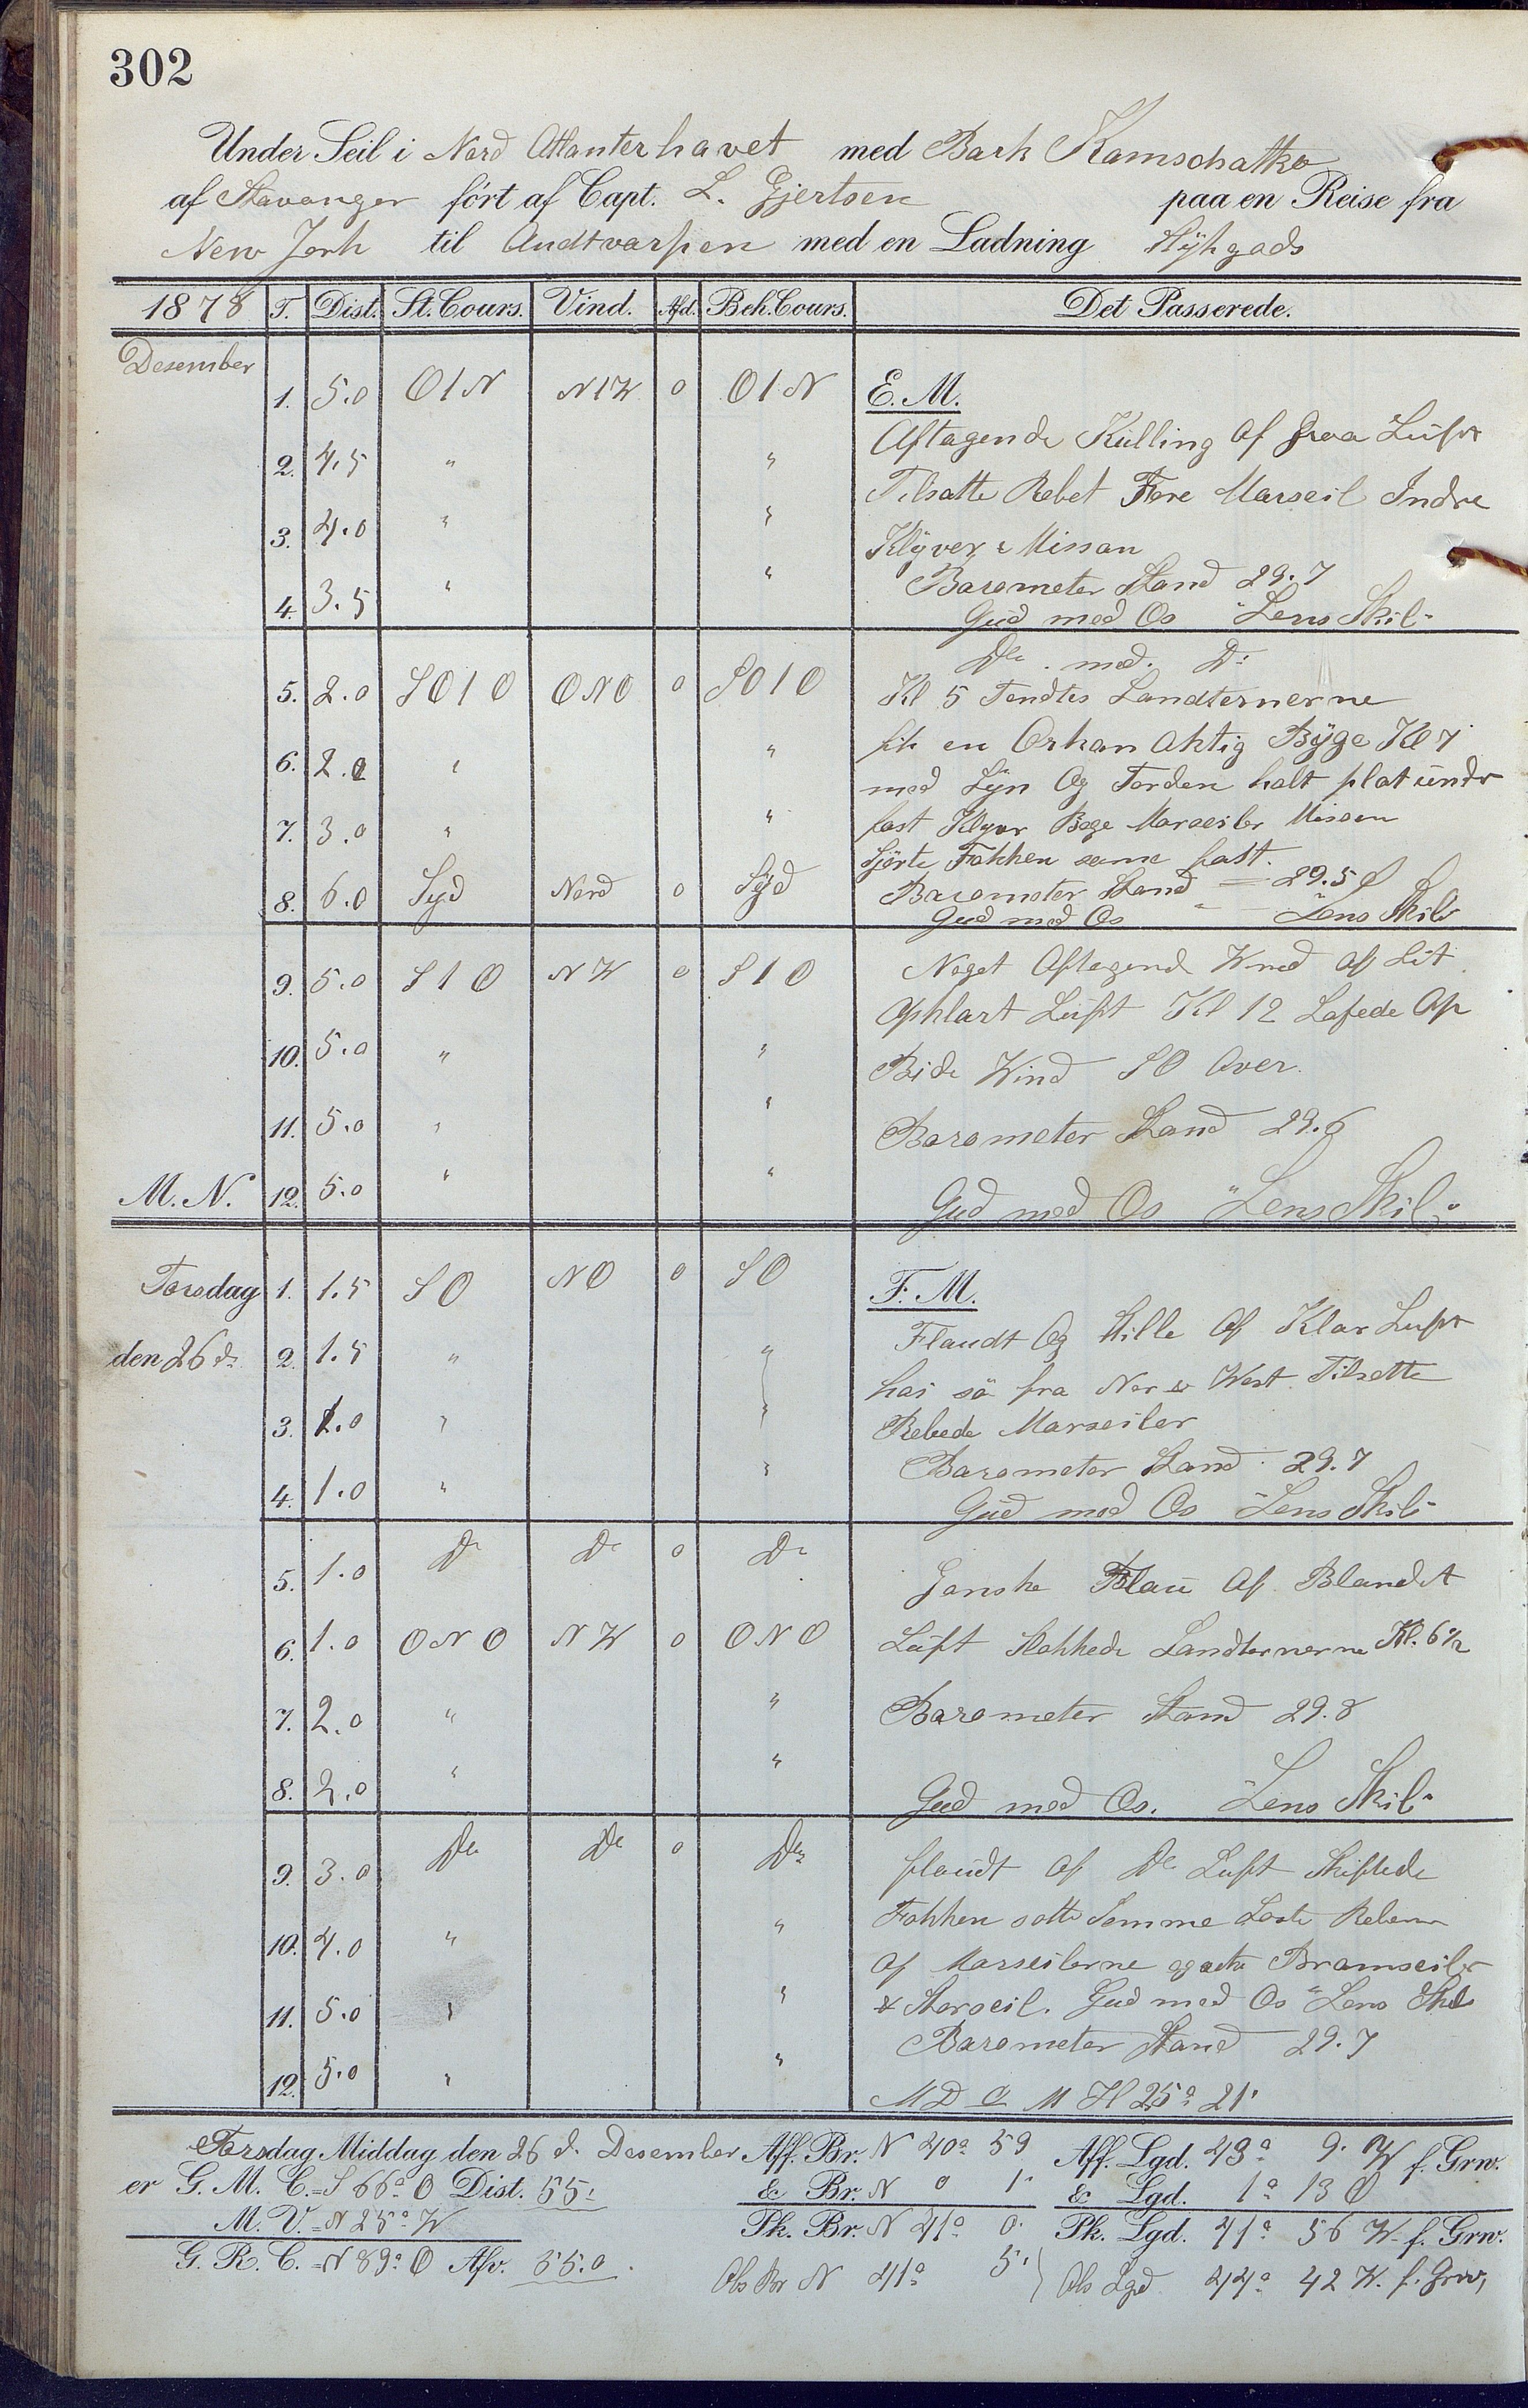 302
Under Seil i Nord Atlanterhavet med Bark Kamschatka
af Stavanger ført af Capt. L. Gjertsen paa en Reise fra
New Jork til Andtvarpen med en Ladning Stÿkgods
1878 T. Dist. St. Cours. Vind. Afd. Beh. Cours. Det Passerede.
Desember
1. 5.0 O1N N1W 0 O1N E. M.
Aftagende Kulling af Graa Luft
2. 4.5 " "
Tilsatte Rebet Fore Marseil Indre
3. 4.0 " "
Klÿver & Missan
4. 3.5 " " Barometer Stand 29.7
Gud med Os "Lens Skib"
De med De
5. 2.0 SO1O ONO 0 SO1O Kl 5 Tendtes Landternerne
6. 2.0 " " fik en Orkan Aktig Bÿge Kl 7
med Lÿn Og Torden halt plat undr
7. 3.0 " " fast Klyver Bege Marseiler Missan
Gjorte Fokken same fast.
8. 6.0 Syd Nord 0 Sÿd Barometer Stand 29.5
Gud med Os Lens Skib
9. 5.0 S1O NW 0 S1O Noget Aftagende Wind af Lit
Opklart Luft Kl 12 Lofede Op
10. 5.0 " "
Bide Wind SO Over.
11. 5.0 " "
Barometer Stand 29.6
M. N. 12. 5.0 " "
Gud med Os "Lens Skib"
Torsdag 1. 1.5 SO NO 0 SO F. M.
Flaudt Og Stille Af Klar Luft
den 26 d. 2. 1.5 " "
hai sö fra Nor & West Tilsette
3. 1.0 " " Rebede Marseiler
Barometer Stand 29.7
4. 1.0 " "
Gud med Os Lens Skib
5. 1.0 De De 0 De Ganske Flau Af Blandet
6. 1.0 ONO NW 0 ONO Luft Slokkede Landternerne Kl. 6½
7. 2.0 " " Barometer Stand 29.8
8. 2.0 " "
Gud med Os. Lens Skib
9. 3.0 De De 0 De flaudt af De Luft Skiftede
Fokken satte Samme Loste Rebene
10. 4.0 " "
Af Marseilerne og sette Bramseiler
11. 5.0 " " & Storseil. Gud med Os "Lens Skib
Barometer Stand 29.7
12. 5.0 " "
M D O M H 25° 21'
Torsdag Middag den 26 d. Desember Aff. Br. N 40° 59 Aff. Lgd. 43° 9' W f. Grw.
er G. M. C. = S 66° O Dist. 55' & Br. N 0 1' & Lgd. 1° 13 O
M. V. = N 25° W Pk. Br. N 41° 0' Pk. Lgd. 41° 56 W f. Grw.
G. R. C. = N 89° O Afv. 55.0. Obs Br N 41° 5' Obs Lgd 44° 42 W. f. Grw,